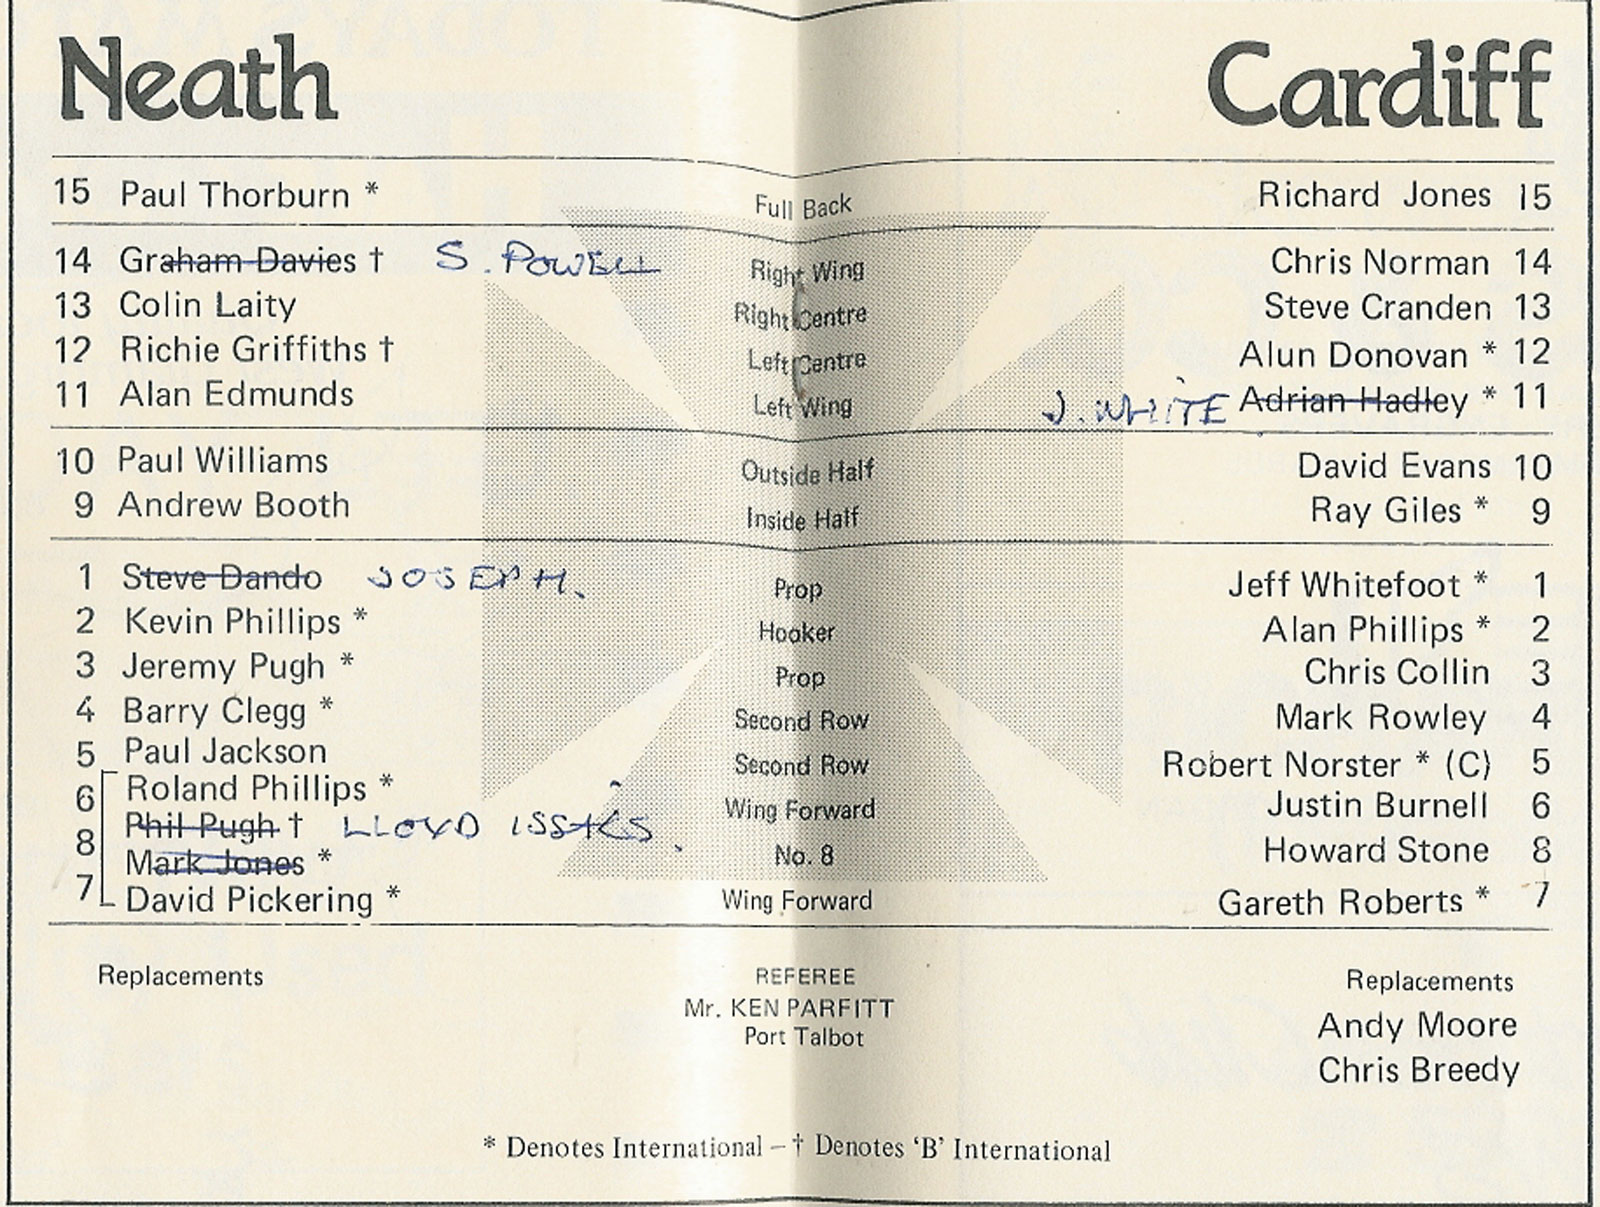 Neath Cardiff
15 Paul Thorburn * Full Back Richard Jones 15
14 Graham Davies † S. POWELL Right Wing Chris Norman 14
13 Colin Laity Right Centre Steve Cranden 13
12 Richie Griffiths † Left Centre Alun Donovan * 12
11 Alan Edmunds Left Wing J. WHITE Adrian Hadley * 11
10 Paul Williams Outside Half David Evans 10
9 Andrew Booth Inside Half Ray Giles * 9
1 Steve Dando JOSEPH. Prop Jeff Whitefoot * 1
2 Kevin Phillips * Hooker Alan Phillips * 2
3 Jeremy Pugh * Prop Chris Collin 3
4 Barry Clegg * Second Row Mark Rowley 4
5 Paul Jackson Second Row Robert Norster * (C) 5
6 Roland Phillips * Wing Forward Justin Burnell 6
Phil Pugh † LLOYD ISSACS.
8 Mark Jones * No. 8 Howard Stone 8
7 David Pickering * Wing Forward Gareth Roberts * 7
Replacements REFEREE Replacements
Mr. KEN PARFITT Andy Moore
Port Talbot
Chris Breedy
* Denotes International – † Denotes ‘B’ International